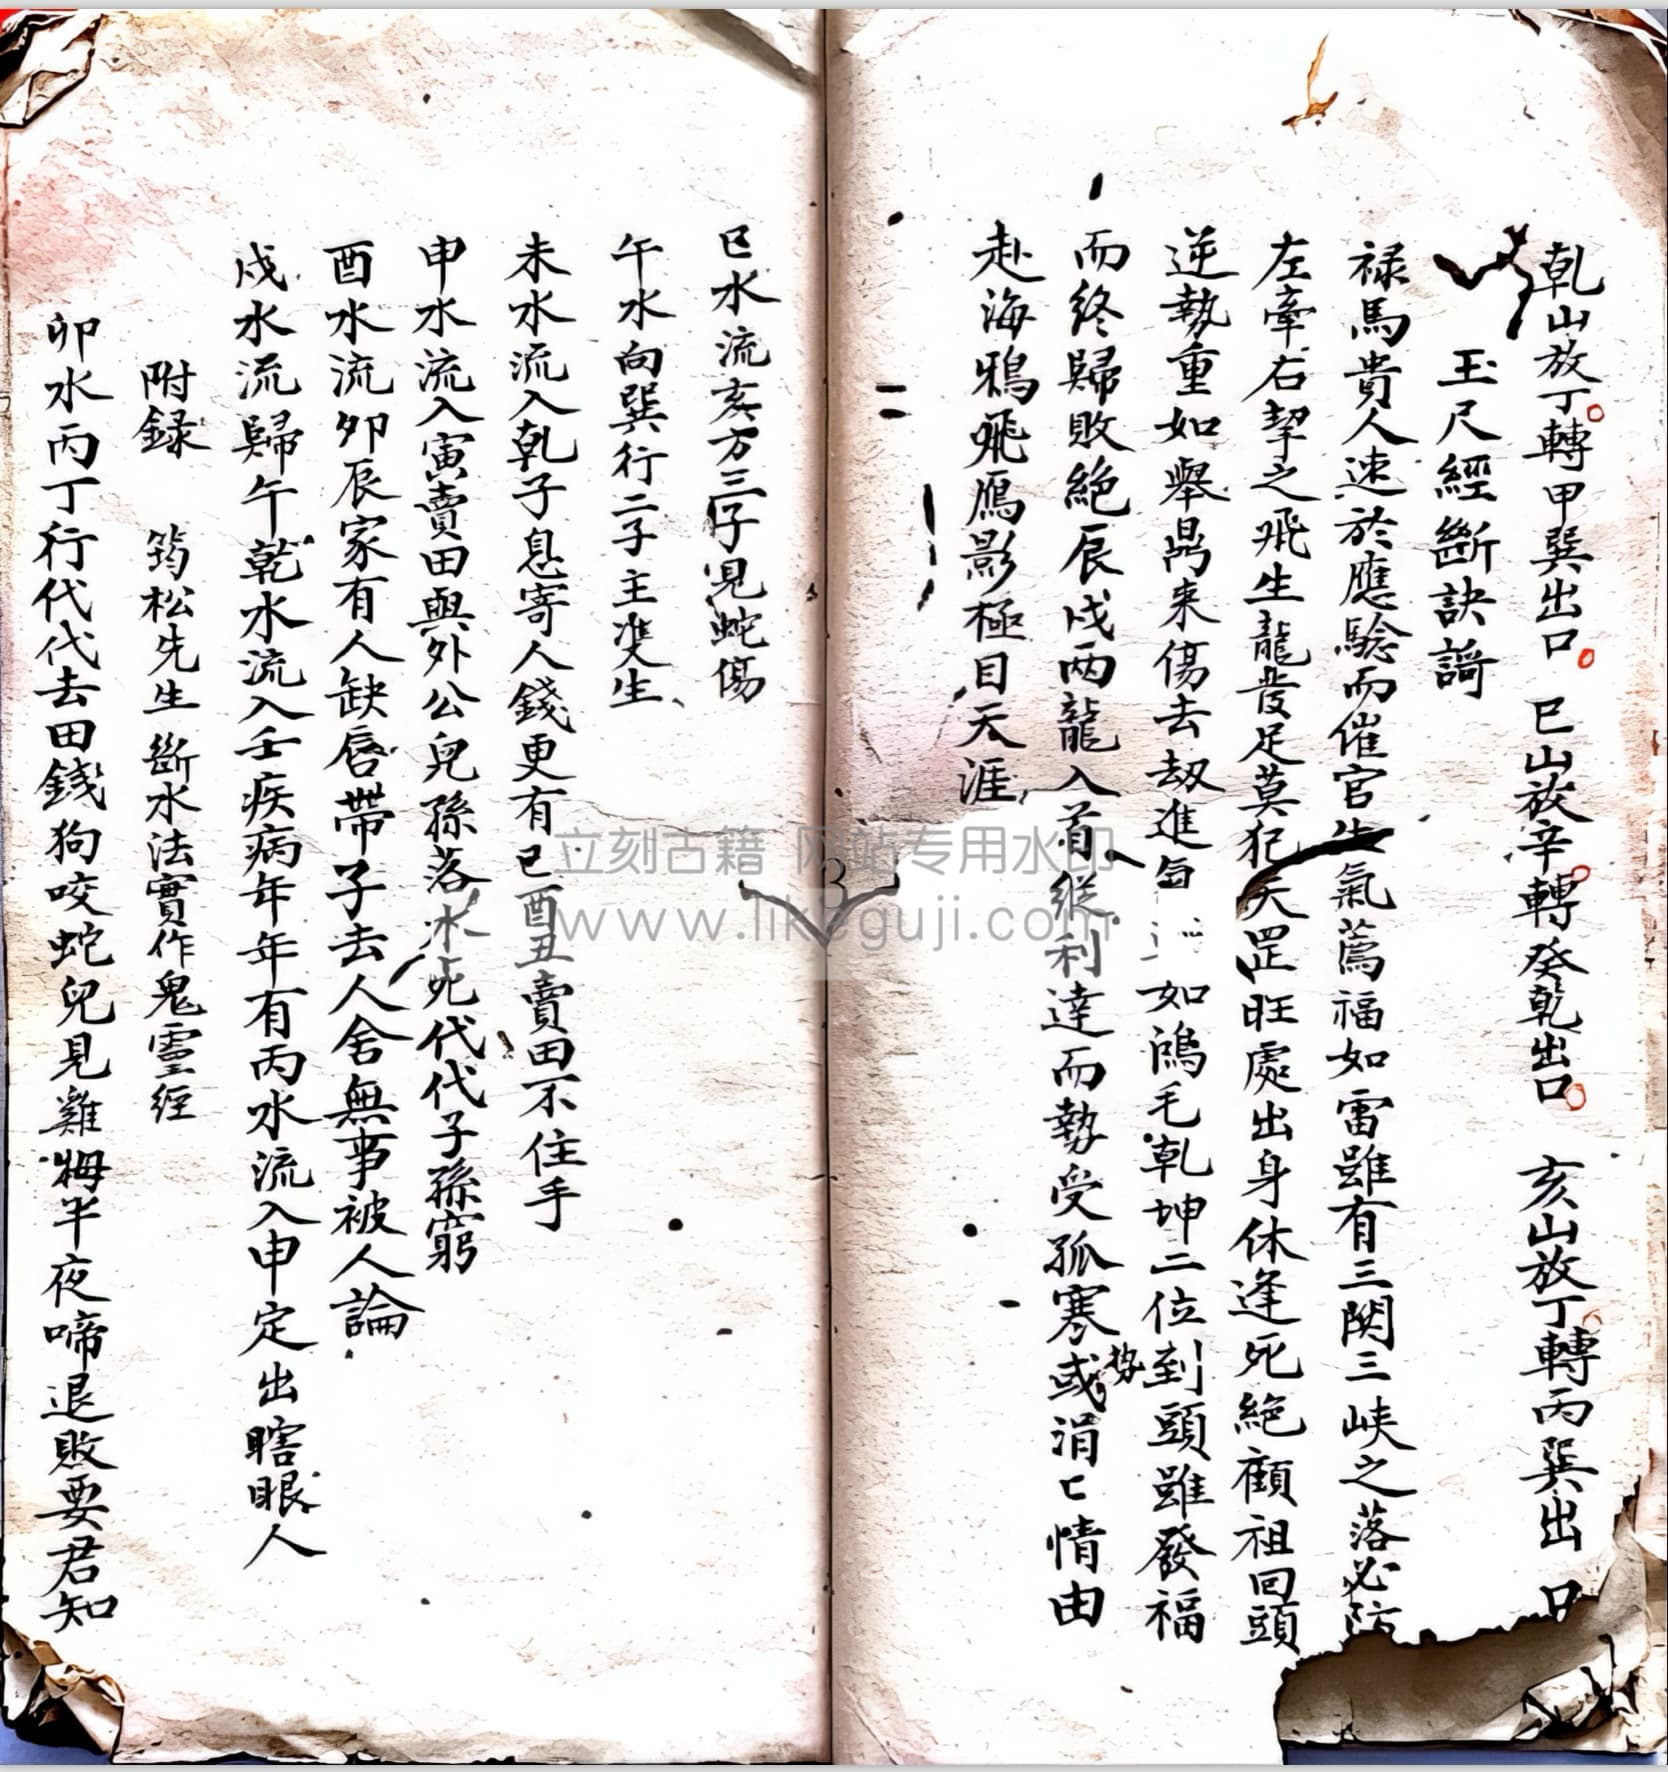 乾山放丁轉甲巽出口 巳山放辛轉癸乾出口 亥山放丁轉丙巽出口
玉尺經斷訣論
祿馬貴人速於應驗而催官生氣薦福如雷雖有三関三峡之落必防
左牽右挈之飛生龍發足莫犯天罡旺處出身休逢死絕顧祖回頭
逆勢重如舉鼎来傷去刼進 如鴻毛乾坤二位到頭雖發福
而終歸敗絕辰戌两龍入首縱利達而勢受孤寒或涓匕情由
赴海鴉飛鴈影極目天涯
巳水流亥方三子見蛇傷
午水向巽行二子主雙生
未水流入乾子息寄人錢更有巳酉丑賣田不住手
申水流入寅賣田與外公兒孫落水死代代子孫窮
酉水流卯辰家有人缺唇帶子去人舍無事被人論
戍水流歸午乾水流入壬疾病年年有丙水流入申定出瞎眼人
附録 筠松先生斷水法實作鬼靈経
卯水丙丁行代代去田錢狗咬蛇兒見雞姆半夜啼退敗要君知
立刻古籍 网站专用水印
www.likeguji.com
3